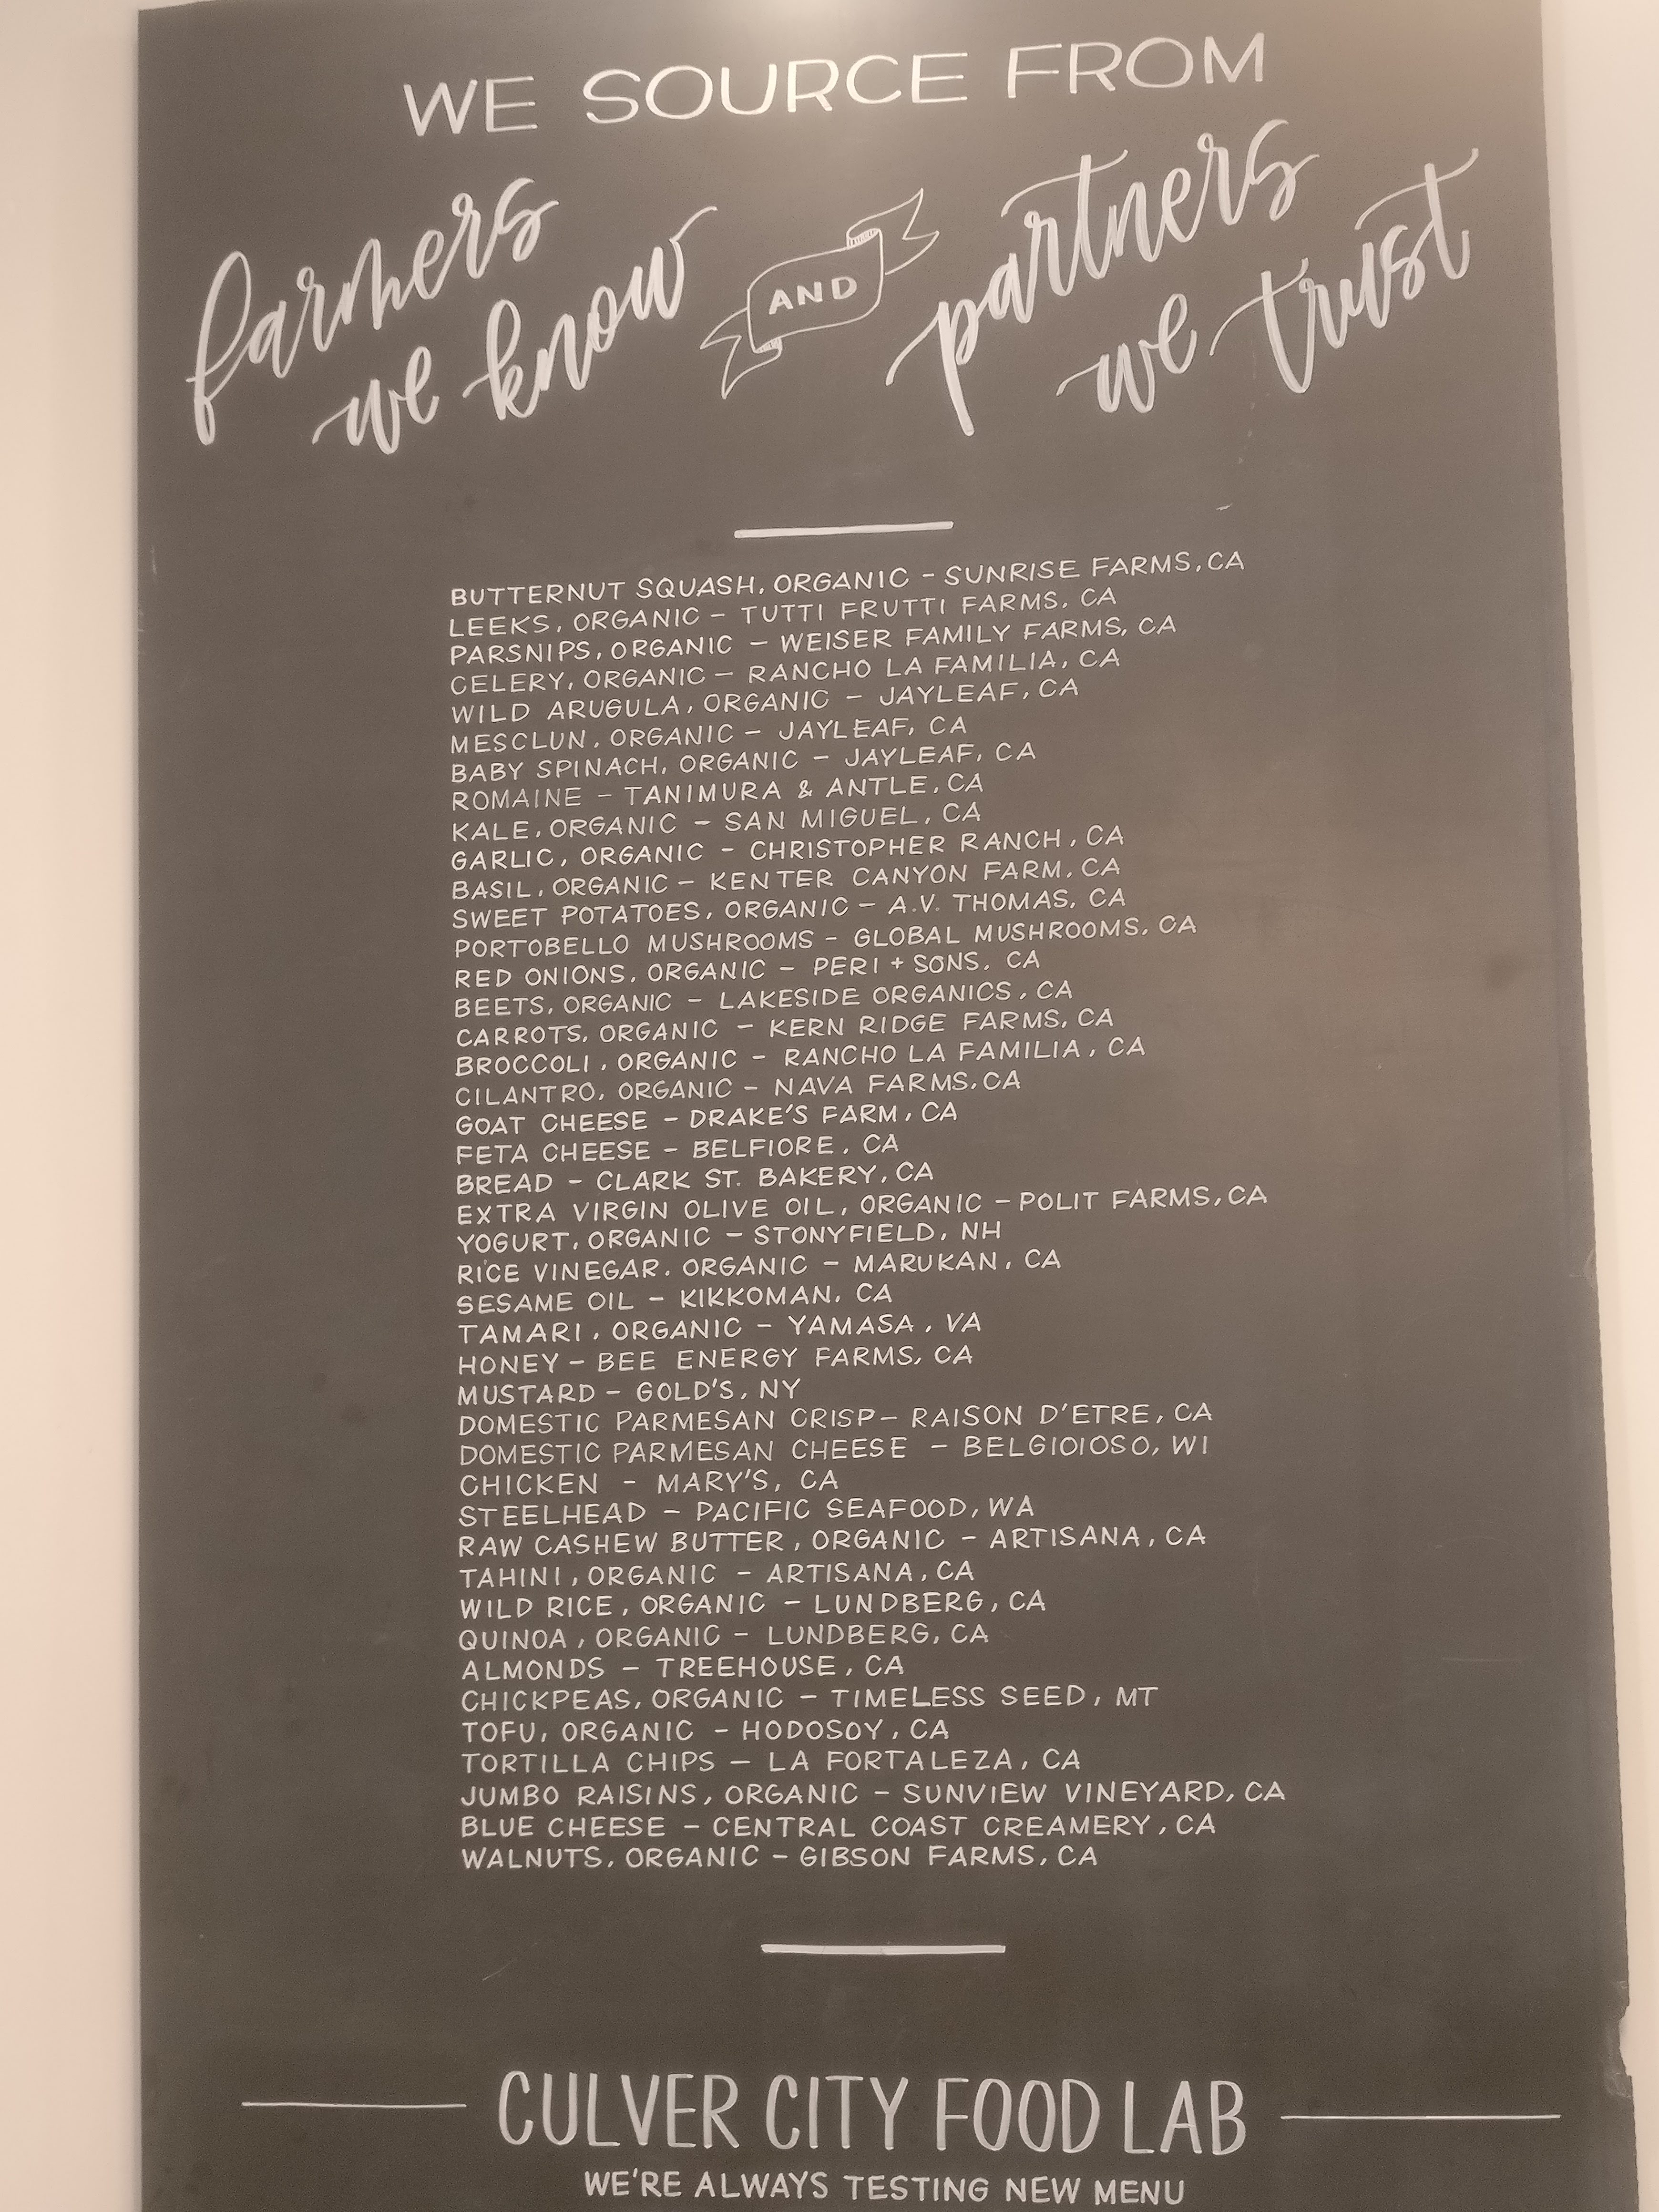 WE SOURCE FROM
farmers
we know
AND
partners
we trust
BUTTERNUT SQUASH, ORGANIC - SUNRISE FARMS, CA
LEEKS, ORGANIC - TUTTI FRUTTI FARMS, CA
PARSNIPS, ORGANIC - WEISER FAMILY FARMS, CA
CELERY, ORGANIC - RANCHO LA FAMILIA, CA
WILD ARUGULA, ORGANIC - JAYLEAF, CA
MESCLUN, ORGANIC - JAYLEAF, CA
BABY SPINACH, ORGANIC - JAYLEAF, CA
ROMAINE - TANIMURA & ANTLE, CA
KALE, ORGANIC - SAN MIGUEL, CA
GARLIC, ORGANIC - CHRISTOPHER RANCH, CA
BASIL, ORGANIC - KENTER CANYON FARM, CA
SWEET POTATOES, ORGANIC - A.V. THOMAS, CA
PORTOBELLO MUSHROOMS - GLOBAL MUSHROOMS, CA
RED ONIONS, ORGANIC - PERI + SONS, CA
BEETS, ORGANIC - LAKESIDE ORGANICS, CA
CARROTS, ORGANIC - KERN RIDGE FARMS, CA
BROCCOLI, ORGANIC - RANCHO LA FAMILIA, CA
CILANTRO, ORGANIC - NAVA FARMS, CA
GOAT CHEESE - DRAKE'S FARM, CA
FETA CHEESE - BELFIORE, CA
BREAD - CLARK ST. BAKERY, CA
EXTRA VIRGIN OLIVE OIL, ORGANIC - POLIT FARMS, CA
YOGURT, ORGANIC - STONYFIELD, NH
RICE VINEGAR, ORGANIC - MARUKAN, CA
SESAME OIL - KIKKOMAN, CA
TAMARI, ORGANIC - YAMASA, VA
HONEY - BEE ENERGY FARMS, CA
MUSTARD - GOLD'S, NY
DOMESTIC PARMESAN CRISP - RAISON D'ETRE, CA
DOMESTIC PARMESAN CHEESE - BELGIOIOSO, WI
CHICKEN - MARY'S, CA
STEELHEAD - PACIFIC SEAFOOD, WA
RAW CASHEW BUTTER, ORGANIC - ARTISANA, CA
TAHINI, ORGANIC - ARTISANA, CA
WILD RICE, ORGANIC - LUNDBERG, CA
QUINOA, ORGANIC - LUNDBERG, CA
ALMONDS - TREEHOUSE, CA
CHICKPEAS, ORGANIC - TIMELESS SEED, MT
TOFU, ORGANIC - HODOSOY, CA
TORTILLA CHIPS - LA FORTALEZA, CA
JUMBO RAISINS, ORGANIC - SUNVIEW VINEYARD, CA
BLUE CHEESE - CENTRAL COAST CREAMERY, CA
WALNUTS, ORGANIC - GIBSON FARMS, CA
CULVER CITY FOOD LAB
WE'RE ALWAYS TESTING NEW MENU